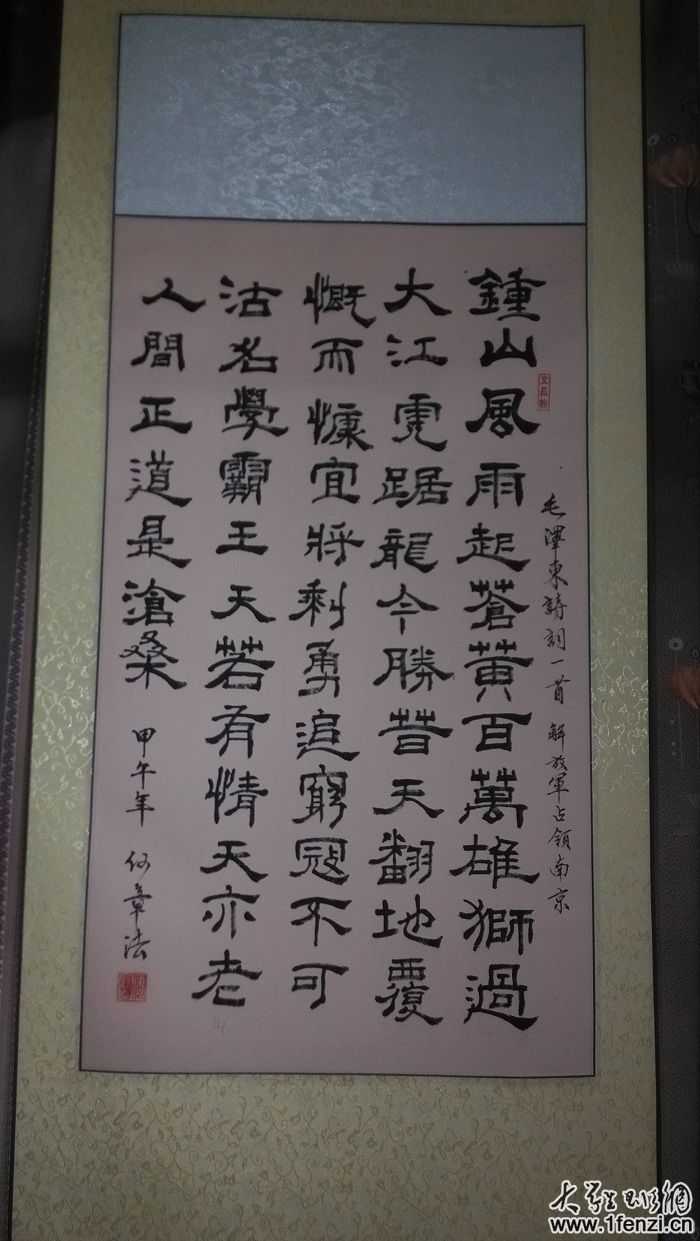 毛澤東詩詞一首 解放軍占領南京
鍾山風雨起蒼黃百萬雄獅過
大江虎踞龍今勝昔天翻地覆
慨而慷宜將剩勇追窮冦不可
沽名學霸王天若有情天亦老
人間正道是滄桑
甲午年 何章法
www.1fenzi.cn